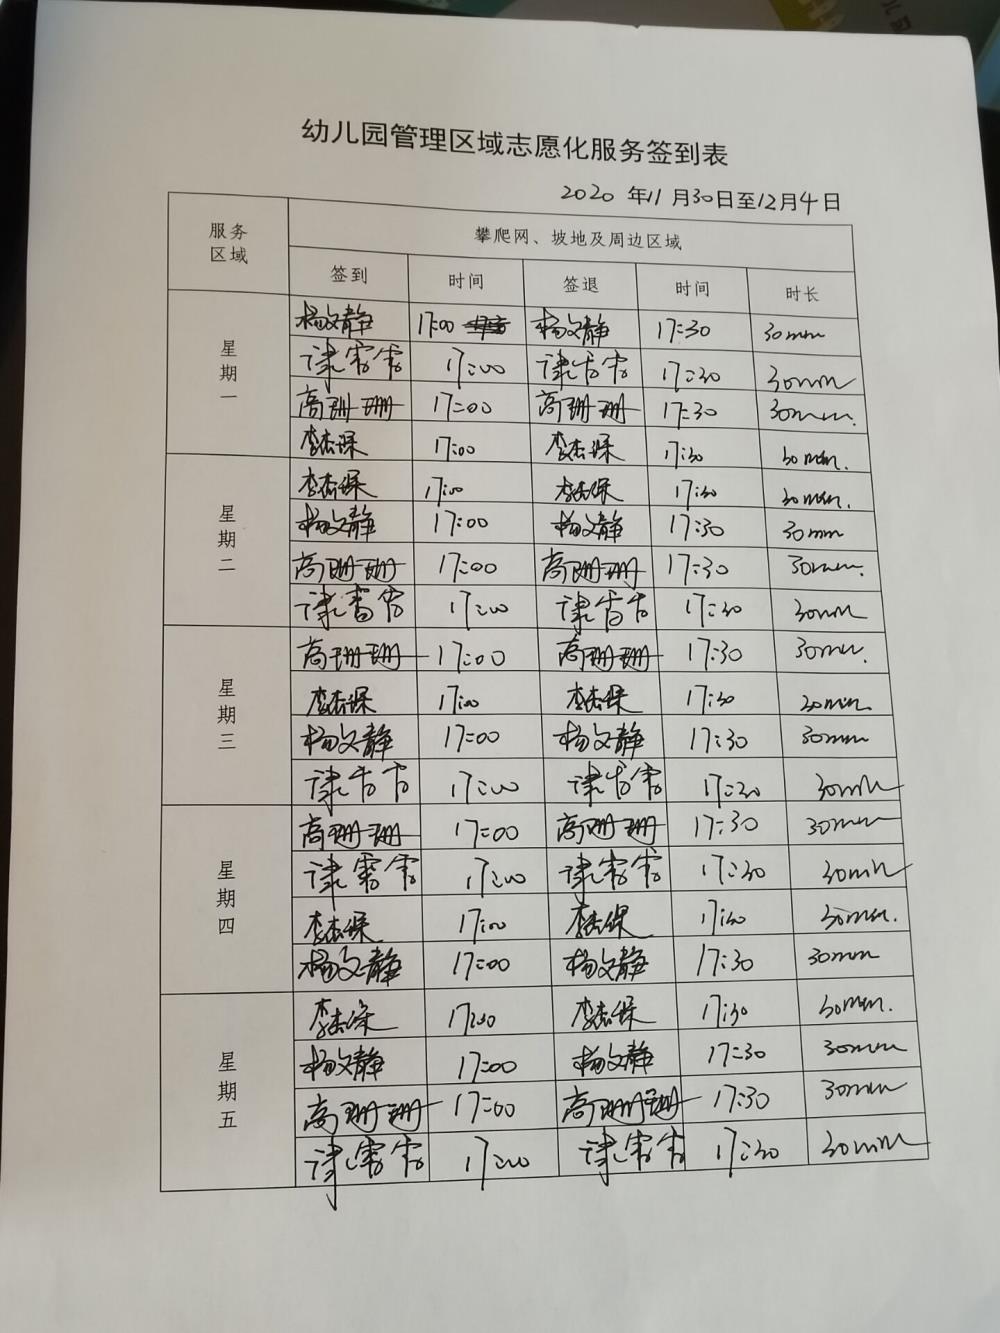 幼儿园管理区域志愿化服务签到表
2020 年11月30日至12月4日
服务区域 攀爬网、坡地及周边区域
签到 时间 签退 时间 时长
星期一
杨文静 17:00 杨文静 17:30 30min
谏雪雪 17:00 谏雪雪 17:30 30min
高珊珊 17:00 高珊珊 17:30 30min.
李杰琛 17:00 李杰琛 17:30 30min.
星期二
李杰琛 17:00 李杰琛 17:30 30min.
杨文静 17:00 杨文静 17:30 30min
高珊珊 17:00 高珊珊 17:30 30min.
谏雪雪 17:00 谏雪雪 17:30 30min
星期三
高珊珊 17:00 高珊珊 17:30 30min.
李杰琛 17:00 李杰琛 17:30 30min.
杨文静 17:00 杨文静 17:30 30min
谏雪雪 17:00 谏雪雪 17:30 30min
星期四
高珊珊 17:00 高珊珊 17:30 30min
谏雪雪 17:00 谏雪雪 17:30 30min
李杰琛 17:00 李杰琛 17:30 30min.
杨文静 17:00 杨文静 17:30 30min
星期五
李杰琛 17:00 李杰琛 17:30 30min.
杨文静 17:00 杨文静 17:30 30min
高珊珊 17:00 高珊珊 17:30 30min
谏雪雪 17:00 谏雪雪 17:30 30min